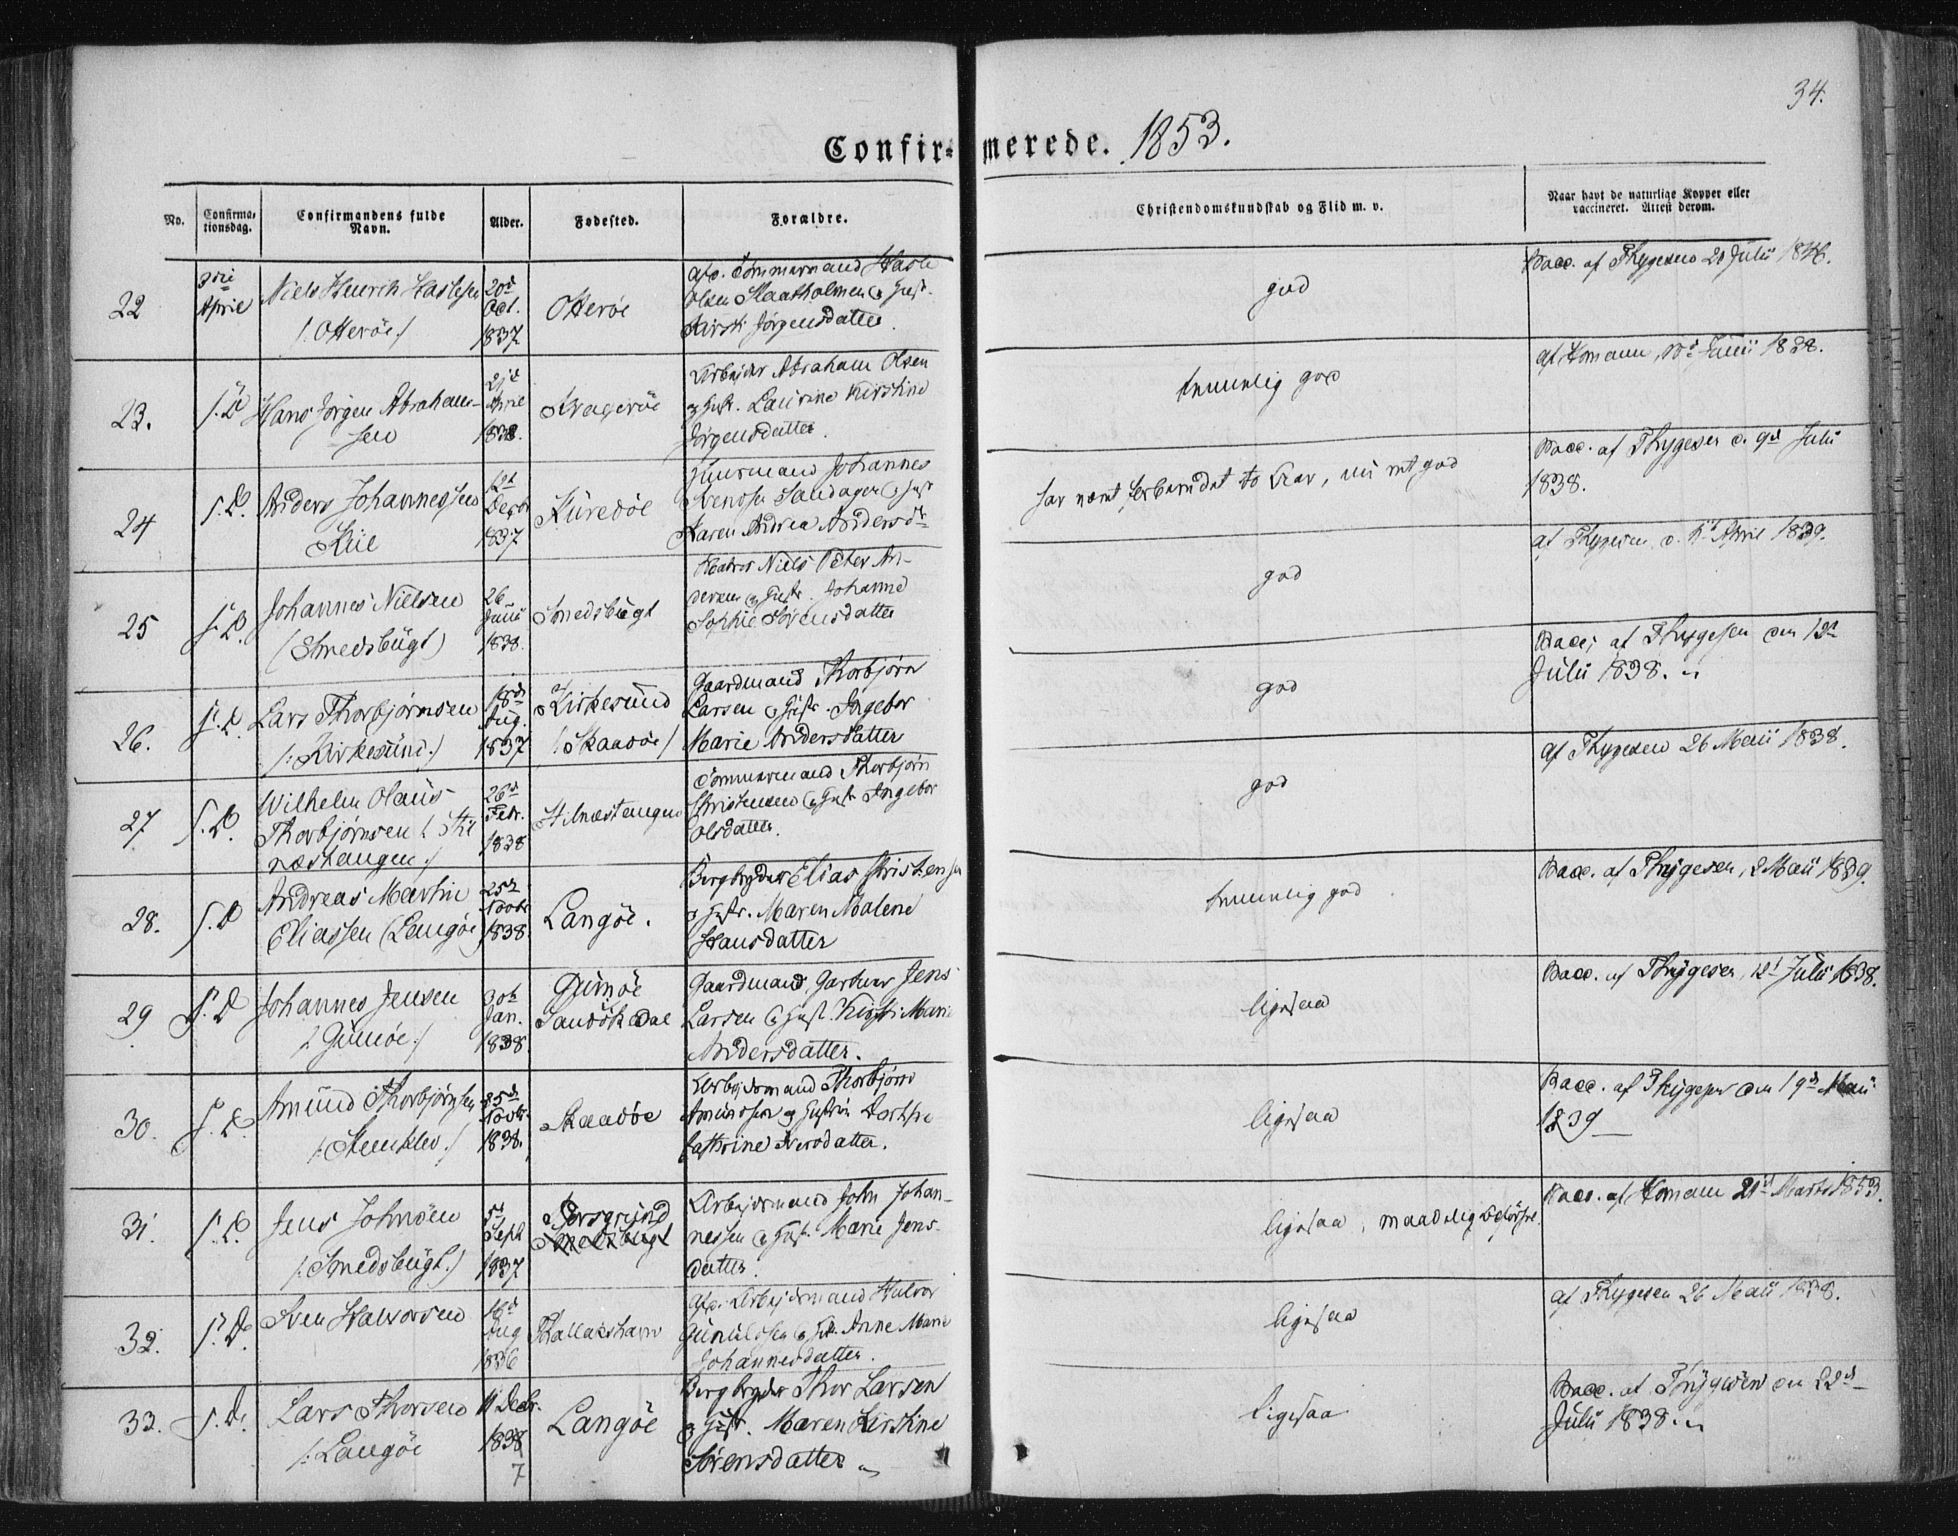 34.
Confirmerede. 1853.
No.
Confirmationsdag.
Confirmandens fulde Navn.
Alder.
Fødested.
Forældre.
Christendomskundskab og Flid m. v.
Naar havt de naturlige Kopper eller vaccineret. Attest derom.
22
3die
April
Niels Henrik
/: Otterøe :/
20d
Oct.
1837
Otterøe
Afd. Tømmermand
Olsen
Kirsti Jørgensdatter
god
Vacc. af Thygesen 21 Julii 1846.
23.
S. D
Hans Jørgen Abraham-
sen
April
1838.
Kragerøe
Arbejder Abraham Olsen
og Hustr. Laurine Kirstine
Jørgensdatter.
temmelig god
af Homann, Junii 1838.
24
S. D.
Anders Johannessen
Kiil
Decbr
1837
Johannes
Karen Andrea Andersdtr
Vacc. af Thygesen d. 9d Julii
1838.
25
S. D.
Johannes Nielsen
(Smedsbügt)
26
Junii
1838.
Smedsbügt
Niels Peter An-
Johanne
Sophie Sørensdatter
god
af Thygesen, d. April 1839.
26.
S. D.
Lars Thorbjørnsen
/: Kirkesund :/
Aug.
1837
Kirkesund
/: Skaadøe /
Gaardmand Thorbjørn
Larsen og Hustr. Ingebor
Marie Andersdatter
god
Vacc. af Thygesen den 12te
Julii 1838.
27
S. D.
Wilhelm Olaus
Thorbjørnsen
næstangen :/
26d
Febr.
1838
Tømmermand Thorbjørn
Christensen og Hustr Ingebor
Olsdatter.
god
af Thygesen 26 Maii 1838.
28.
S. D
Andreas Martin
Eliassen (Langøe)
25de
Novbr
1838.
Langøe.
Bergbryder Elias Christensen
og Hustr. Maren Malene
Hansdatter
temmelig god
Vacc. af Thygesen, 2 Maii 1839.
29
S. D
Johannes Jensen
/: Gumøe :/
Jan.
1838.
Gumøe
i
Gaardmand, Garbver Jens
Larsen og Hustr. Kirsti Marie
Andersdatter.
ligesaa
Vacc. af Thygesen, 12d Julii 1838.
30.
S. D.
Amund Thorbjørnsen
25d
Novbr.
1838.
Skaadøe
Arbejdsmand Thorbjørn
Amundsen og Hustru Dorthe
Cathrine Iversdatter.
ligesaa
Vacc. af Thygesen den 19d Maii
1839
31.
S. D.
Jens Johnsen
/: Smedsbügt :/
5d
Sept
1837
Porsgrund
Smedsbügt
Arbejdsmand John Johan-
nessen og Hustr. Marie Jens-
datter.
ligesaa, maadelig
Vacc. af Homann 21d Marts 1853.
32.
S. D.
Sven Halvorsen
16d
Aug
1836
Afd. Arbejdsmand Halvor
Gunulfsen og Hstr. Anne Marie
Johannesdatter.
ligesaa
af Thygesen 26 Maii 1838.
33.
S. D.
Lars Thorsen
/: Langøe
11 Decbr.
1838
7
Langøe
Bergbryder Thor Larsen
og Hustr. Maren Kirstine
Sørensdatter
ligesaa
Vacc. af Thygesen den 22d
Julii 1838.